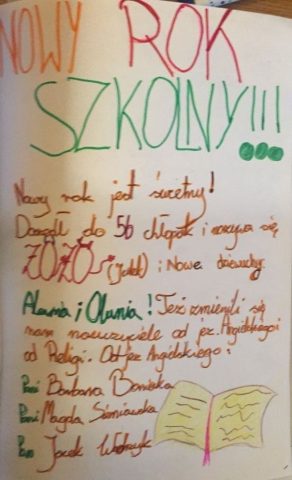 NOWY ROK
SZKOLNY!!!
Nowy rok jest świetny!
Doszedł do 5b chłopak i nazywa się
ŻOŻO (Jakub) i Nowe dziewuchy:
Alama i Olunia! Też zmienili się
nam nauczyciele od jęz. Angielskiego i
od Religi. Od jęz Angielskiego:
Pani Barbara
Pani Magda
Pan Jacek